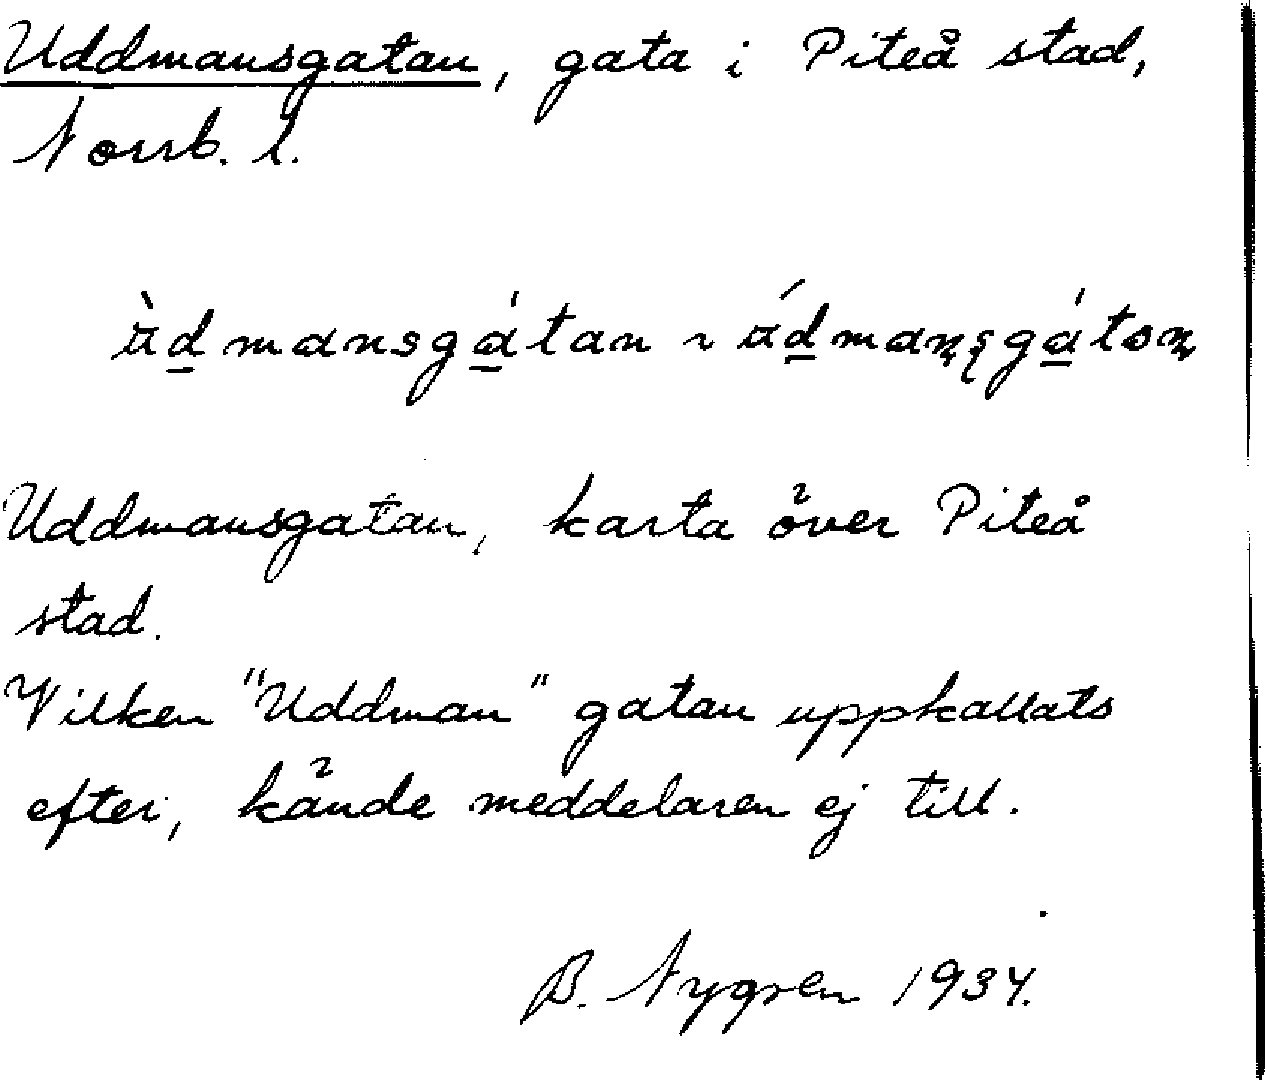 Uddmansgatan, gata i Piteå stad,
Norrb. l.
ɯ̀d̲mansgá̲tan ~ ɯ́d̲manʂgá̲tən
Uddmansgatan, karta över Piteå
stad.
Vilken "Uddman" gatan uppkallats
efter, kände meddelaren ej till.
B. Nygren 1934.